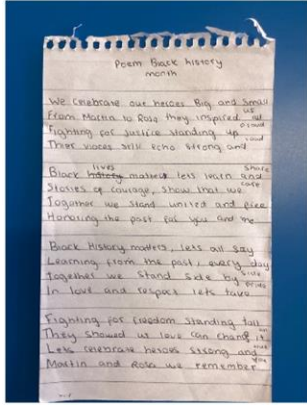 Poem Black history
month
We celebrate our heroes Big and Small
From Martin to Rosa they inspired us all
Fighting for Justice standing up proud
Their voices still echo strong and loud
Black lives matters lets learn and share
Stories of courage, show that we care
Together we stand united and free
Honoring the past for you and me
Black History matters, lets all say
Learning from the past, every day
Together we stand side by side
In love and respect lets take pride
Fighting for freedom standing tall
They showed us love can change it all
Lets celebrate heroes strong and true
Martin and Rosa we remember you